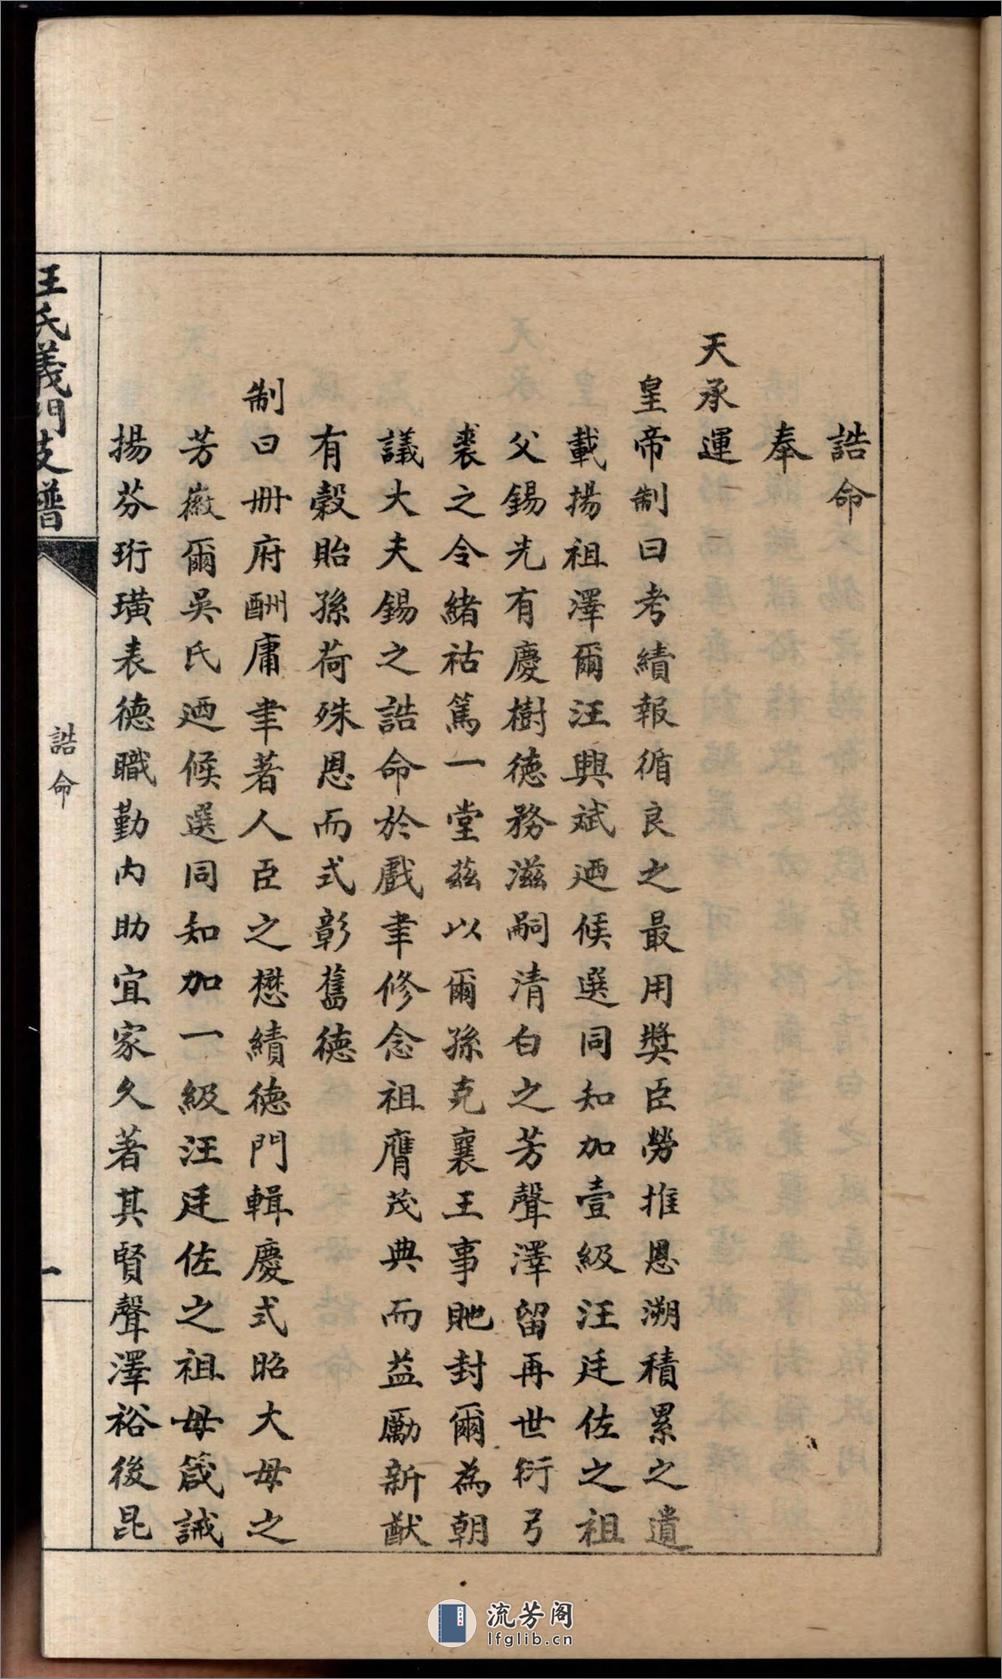 誥命
奉
天承運
皇帝制曰考績報循良之最用獎臣勞推恩溯積累之遺
載揚祖澤爾汪興斌迺候選同知加壹級汪廷佐之祖
父錫光有慶樹德務滋嗣清白之芳聲澤留再世衍弓
裘之令緒祜篤一堂茲以爾孫克襄王事貤封爾為朝
議大夫錫之誥命於戲聿修念祖膺茂典而益勵新猷
有穀貽孫荷殊恩而式彰舊德
制曰冊府酬庸聿著人臣之懋績德門輯慶式昭大母之
芳徽爾吳氏迺候選同知加一級汪廷佐之祖母箴誡
揚芬珩璜表德職勤內助宜家久著其賢聲澤裕後昆
汪氏義門支譜
誥命
一
流芳阁
lfglib.cn